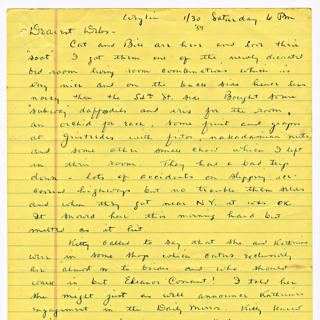 Weylin 1/30 Saturday 6 Pm
'54
Dearest Debs-
Cat and Bill are here and love their
"soot" I got them one of the newly decorated
bed room living room combinations which is
very nice and on the back side hence less
noisy than the 54th St. side Bought some
subway daffodils and iris for the room,
an orchid for each some fruit and grapes
at Gristedes with fritos makadamian nuts
and some other small chow which I left
in their room They had a bad trip
down - lots of accidents on slippery ice
covered highways but no trouble themselves
and when they got near N.Y. it was OK
It snowed here this morning hard but
melted as it hit
Kitty called to say that she and Kathrine
were in some shop which caters exclusively
almost to brides and who should
walk in but Eleanor Conant! I told her
she might just as well announce Kathrines
engagement in the Daily Mirror Kitty